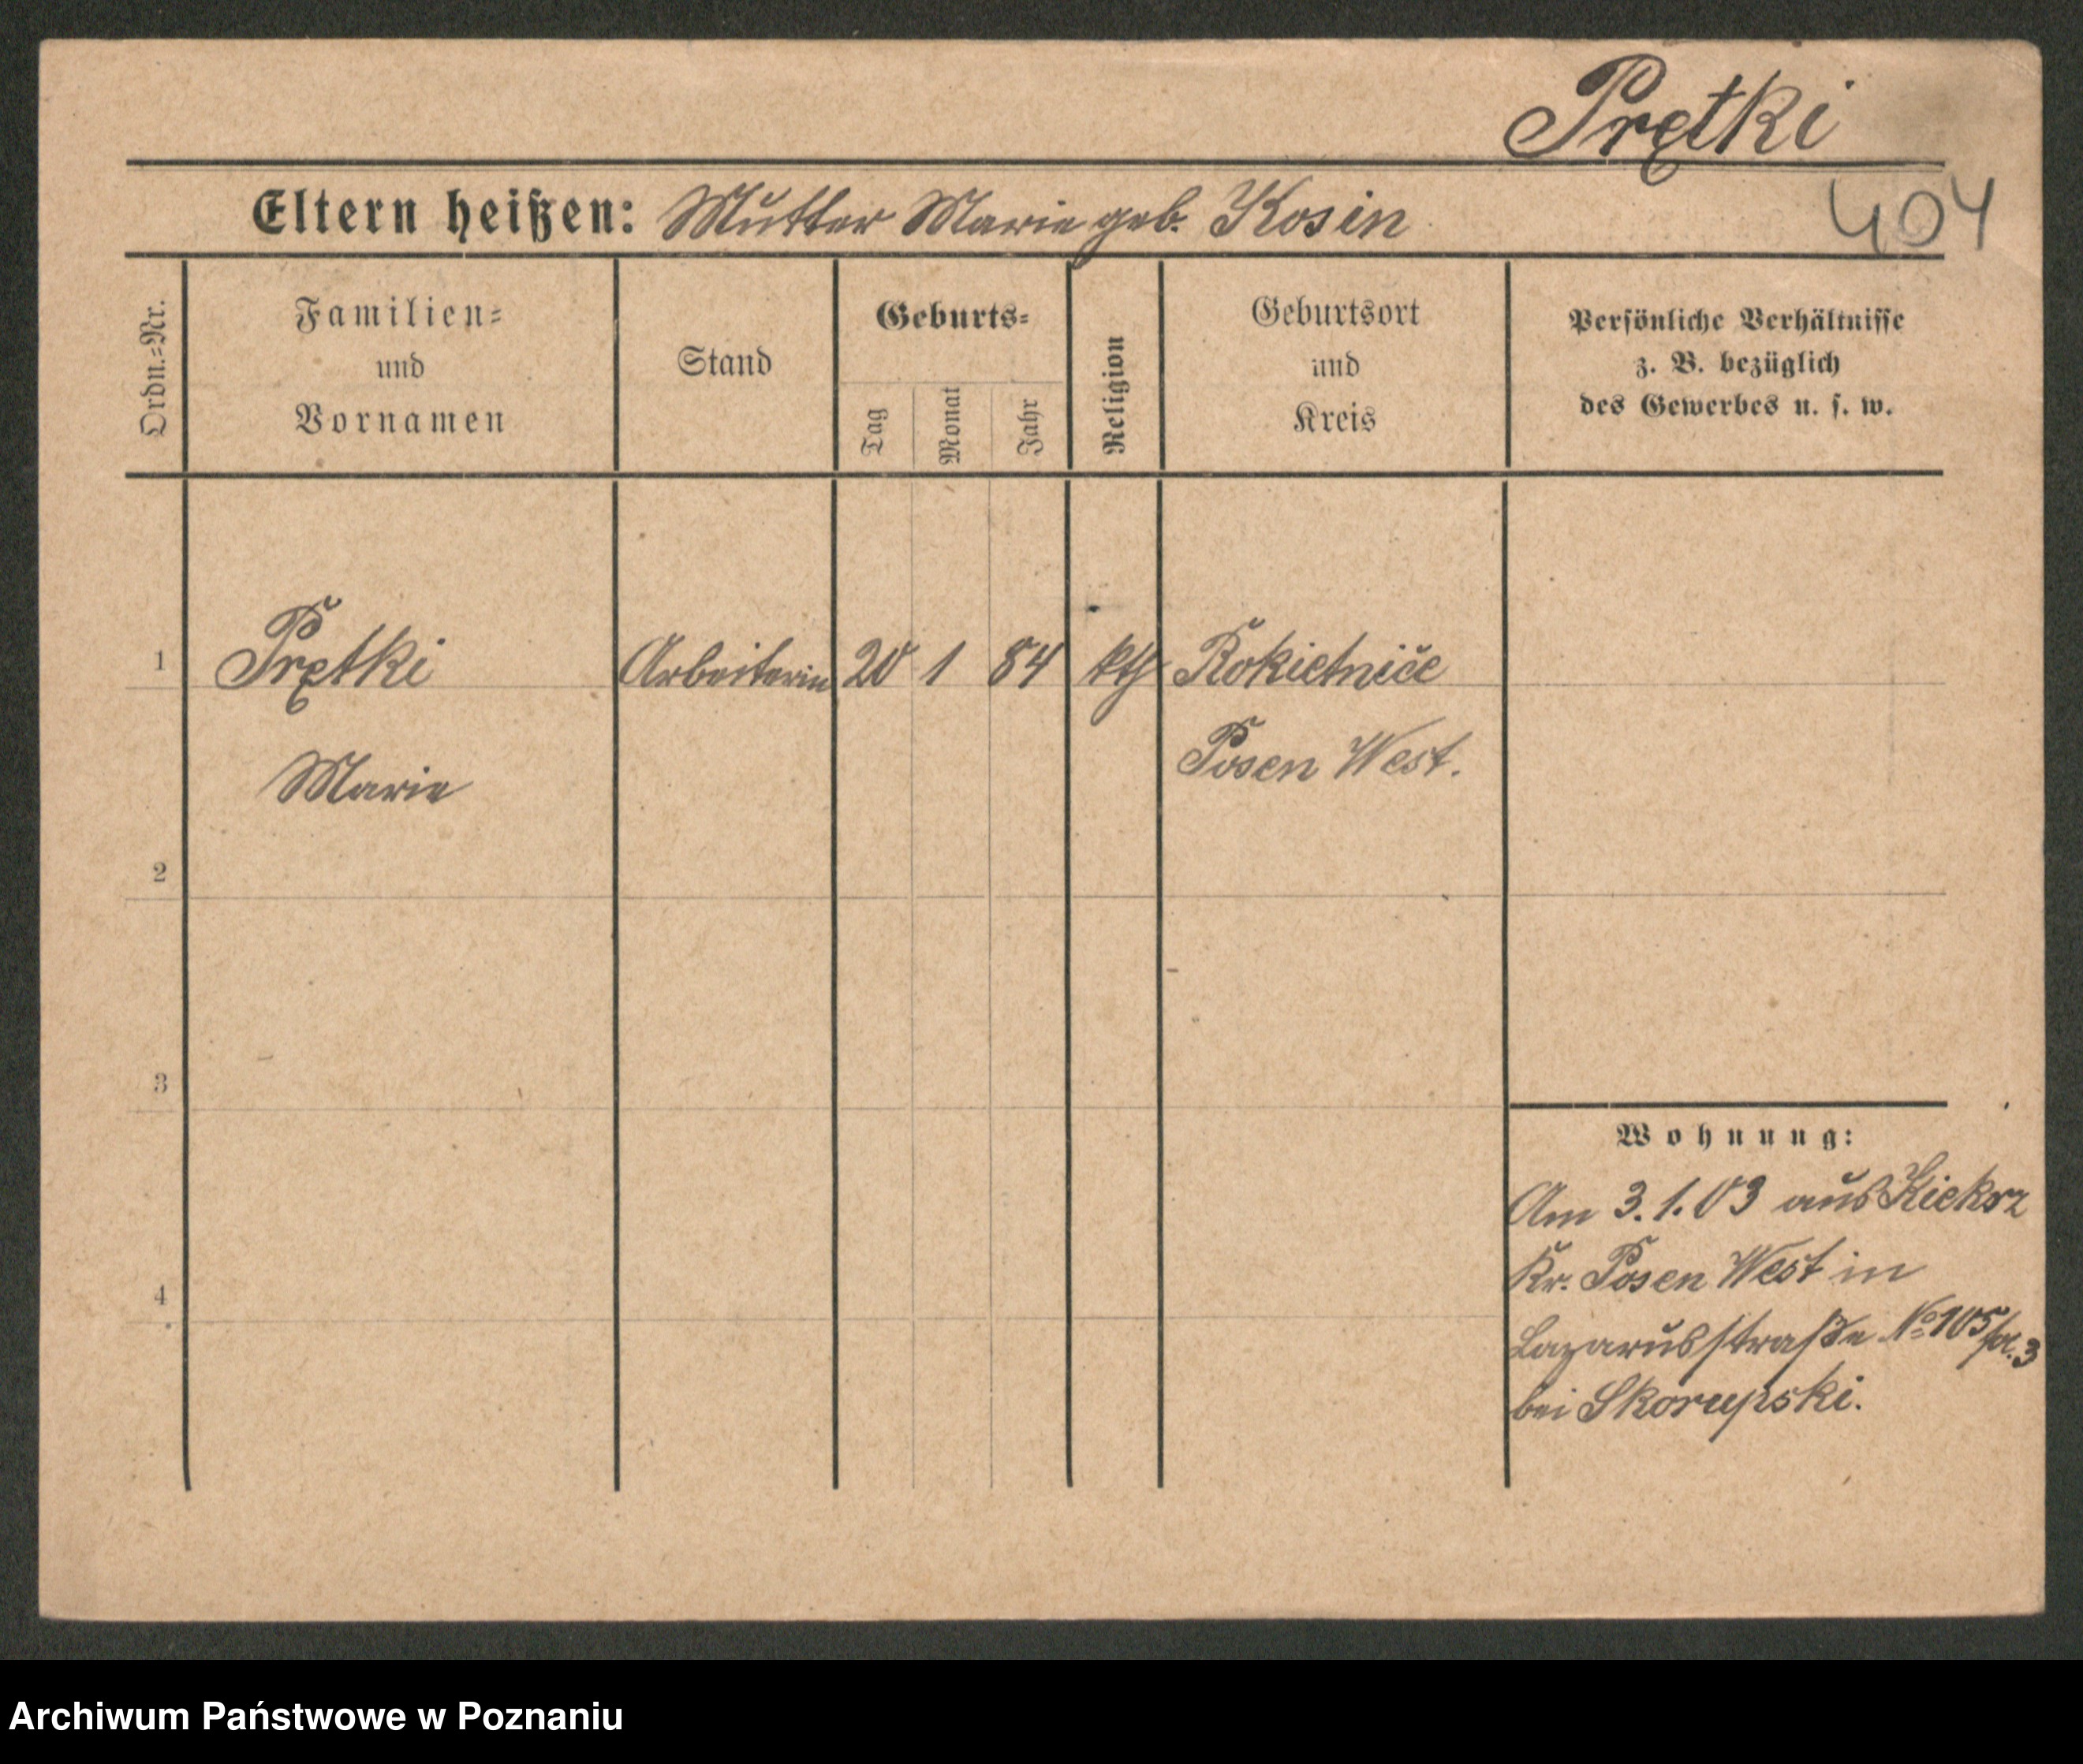 Prętki
Eltern heißen: Mutter Marie geb. Kosin
404
Ordn.=Nr.
Familien=
und
Vornamen
Stand
Geburts=
Tag
Monat
Jahr
Religion
Geburtsort
und
Kreis
Persönliche Verhältnisse
z. B. bezüglich
des Gewerbes u. s. w.
1 Prętki Arbeiterin 20 1 84 kth Rokietnice
Marie Posen West.
2
3
4
Wohnung:
Am 3.1.03 aus Kiekrz
Kr. Posen West in
Lazarusstraße No 105/a.3
bei Skorupski.
Archiwum Państwowe w Poznaniu